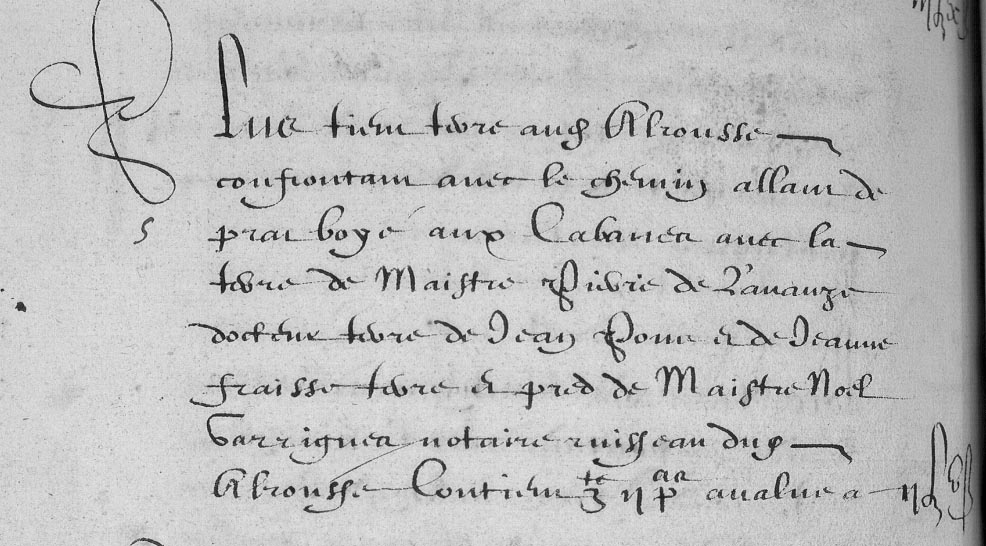 Plus tient terre audit Albrousse
confrontant avec le chemin allant de
prat boyé aux Cabanes avec la
terre de Maistre Pierre de Ravanze
docteur terre de Jean Pons et de Jeanne
fraisse terre et pred de Maistre Noel
Garrigues notaire ruisseau dud
Albrousse Contient avalué a